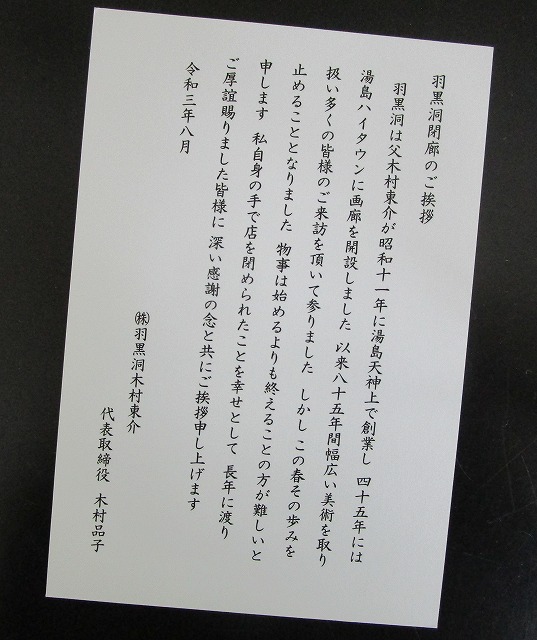 羽黒洞閉廊のご挨拶
羽黒洞は父木村東介が昭和十一年に湯島天神上で創業し 四十五年には
湯島ハイタウンに画廊を開設しました 以来八十五年間幅広い美術を取り
扱い多くの皆様のご来訪を頂いて参りました しかしこの春その歩みを
止めることとなりました 物事は始めるよりも終えることの方が難しいと
申します 私自身の手で店を閉められたことを幸せとして 長年に渡り
ご厚誼賜りました皆様に 深い感謝の念と共にご挨拶申し上げます
令和三年八月
㈱羽黒洞木村東介
代表取締役 木村品子